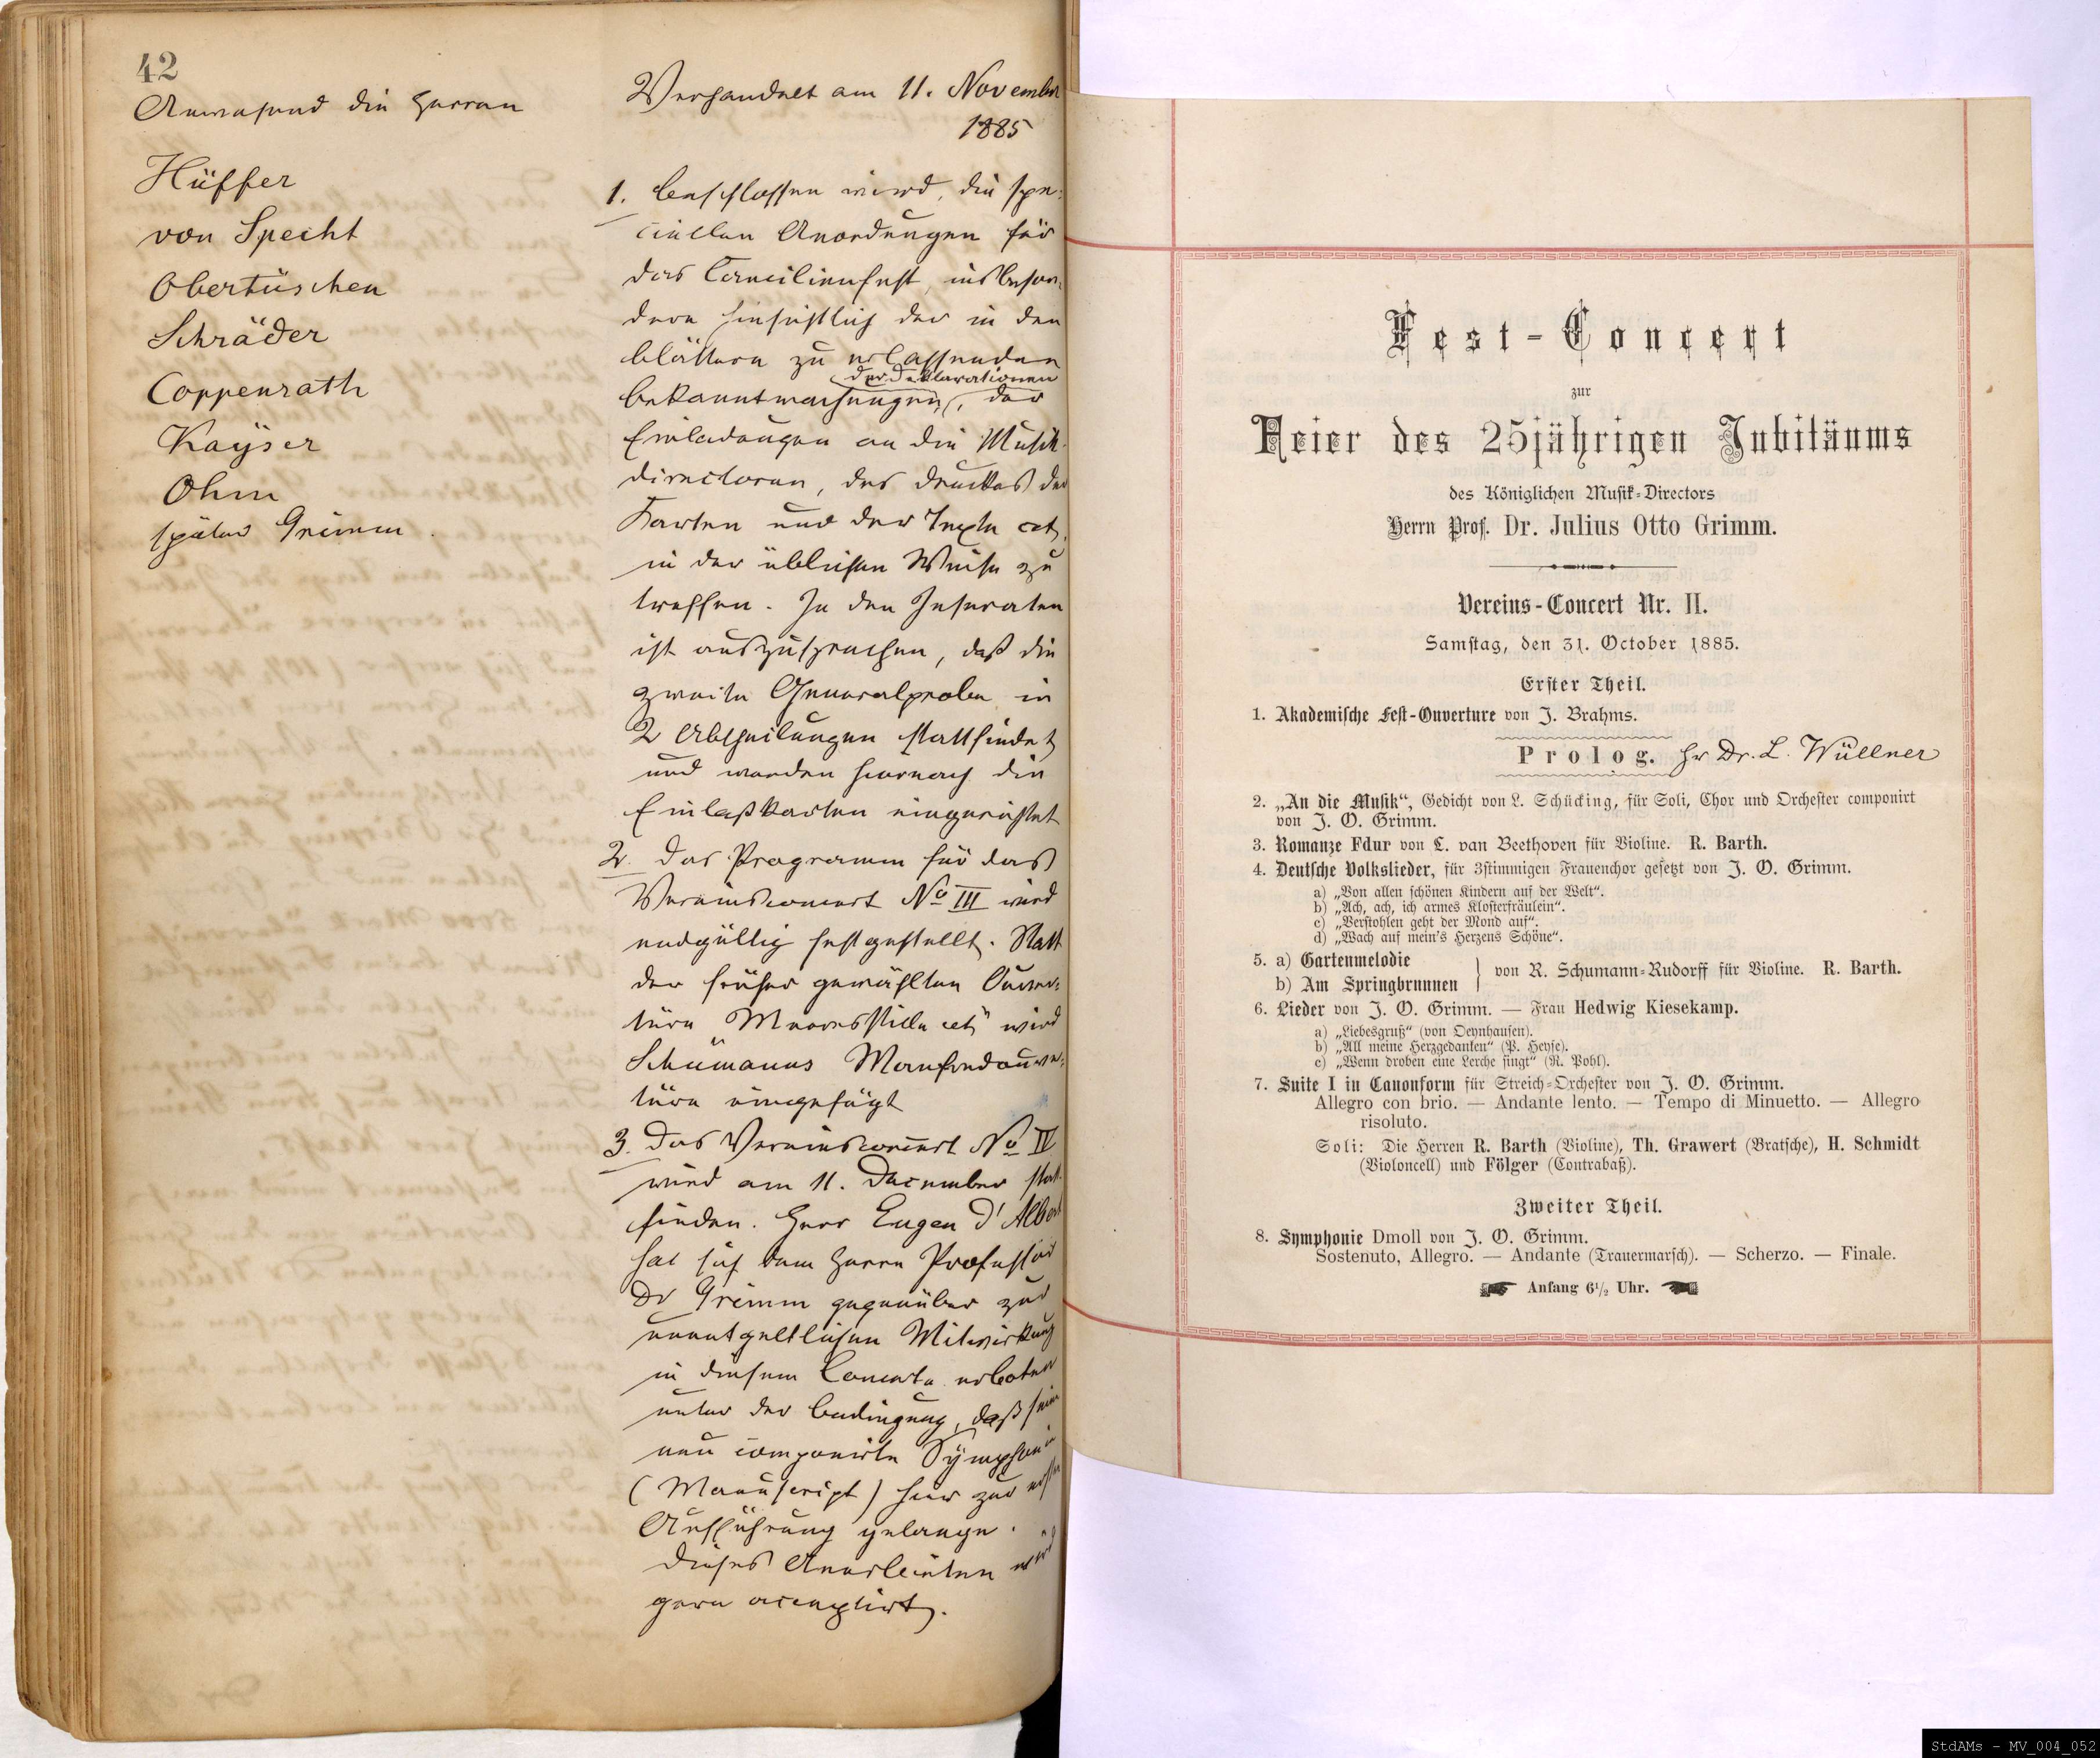 42
Anwesend die Herren
Hüffer
von Specht
Obertüschen
Schräder
Coppenrath
Kayser
Ohm
später Grimm.
Verhandelt am 11. November
1885
1. Beschlossen wird, die spe-
ciellen Anordnungen für
das Caecilienfest, insbeson-
dere hinsichtlich der in den
Blättern zu erlassenden
der Deklarationen
Bekanntmachungen, der
Einladungen an die Musik-
directoren, des Druckes der
Karten und der Texte cet.
in der üblichen Weise zu
treffen. In den Inseraten
ist auszusprechen, daß die
zweite Generalprobe in
2 Abtheilungen stattfindet
und werden hiernach die
Einlaßkarten eingerichtet
2. Das Programm für das
Vereinsconcert No III wird
endgültig festgestellt. Statt
der früher gewählten Ouver-
türe Meeresstille cet. wird
Schumanns Manfredouver-
türe eingefügt
3. Das Vereinsconcert No IV
wird am 11. December statt-
finden. Herr Eugen d'Albert
hat sich dem Herrn Professor
Dr Grimm gegenüber zur
unentgeltlichen Mitwirkung
in diesem Concerte erboten
unter der Bedingung, daß seine
neu componirte Symphonie
(Manuscript) hier zur ersten
Aufführung gelange.
Dieses Anerbieten wird
gern acceptirt.
Fest-Concert
zur
Feier des 25jährigen Jubiläums
des Königlichen Musik-Directors
Herrn Prof. Dr. Julius Otto Grimm.
Vereins-Concert Nr. II.
Samstag, den 31. October 1885.
Erster Theil.
1. Akademische Fest-Ouverture von J. Brahms.
Prolog. Hr Dr. L. Wüllner
2. „An die Musik“, Gedicht von L. Schücking, für Soli, Chor und Orchester componirt
von J. O. Grimm.
3. Romanze Fdur von L. van Beethoven für Violine. R. Barth.
4. Deutsche Volkslieder, für 3stimmigen Frauenchor gesetzt von J. O. Grimm.
a) „Von allen schönen Kindern auf der Welt“.
b) „Ach, ach, ich armes Klosterfräulein“.
c) „Verstohlen geht der Mond auf“.
d) „Wach auf mein's Herzens Schöne“.
5. a) Gartenmelodie
b) Am Springbrunnen
von R. Schumann-Rudorff für Violine. R. Barth.
6. Lieder von J. O. Grimm. — Frau Hedwig Kiesekamp.
a) „Liebesgruß“ (von Oeynhausen).
b) „All meine Herzgedanken“ (P. Heyse).
c) „Wenn droben eine Lerche singt“ (R. Pohl).
7. Suite I in Canonform für Streich-Orchester von J. O. Grimm.
Allegro con brio. — Andante lento. — Tempo di Minuetto. — Allegro
risoluto.
Soli: Die Herren R. Barth (Violine), Th. Grawert (Bratsche), H. Schmidt
(Violoncell) und Fölger (Contrabaß).
Zweiter Theil.
8. Symphonie Dmoll von J. O. Grimm.
Sostenuto, Allegro. — Andante (Trauermarsch). — Scherzo. — Finale.
Anfang 6½ Uhr.
StdAMs - MV_004_052